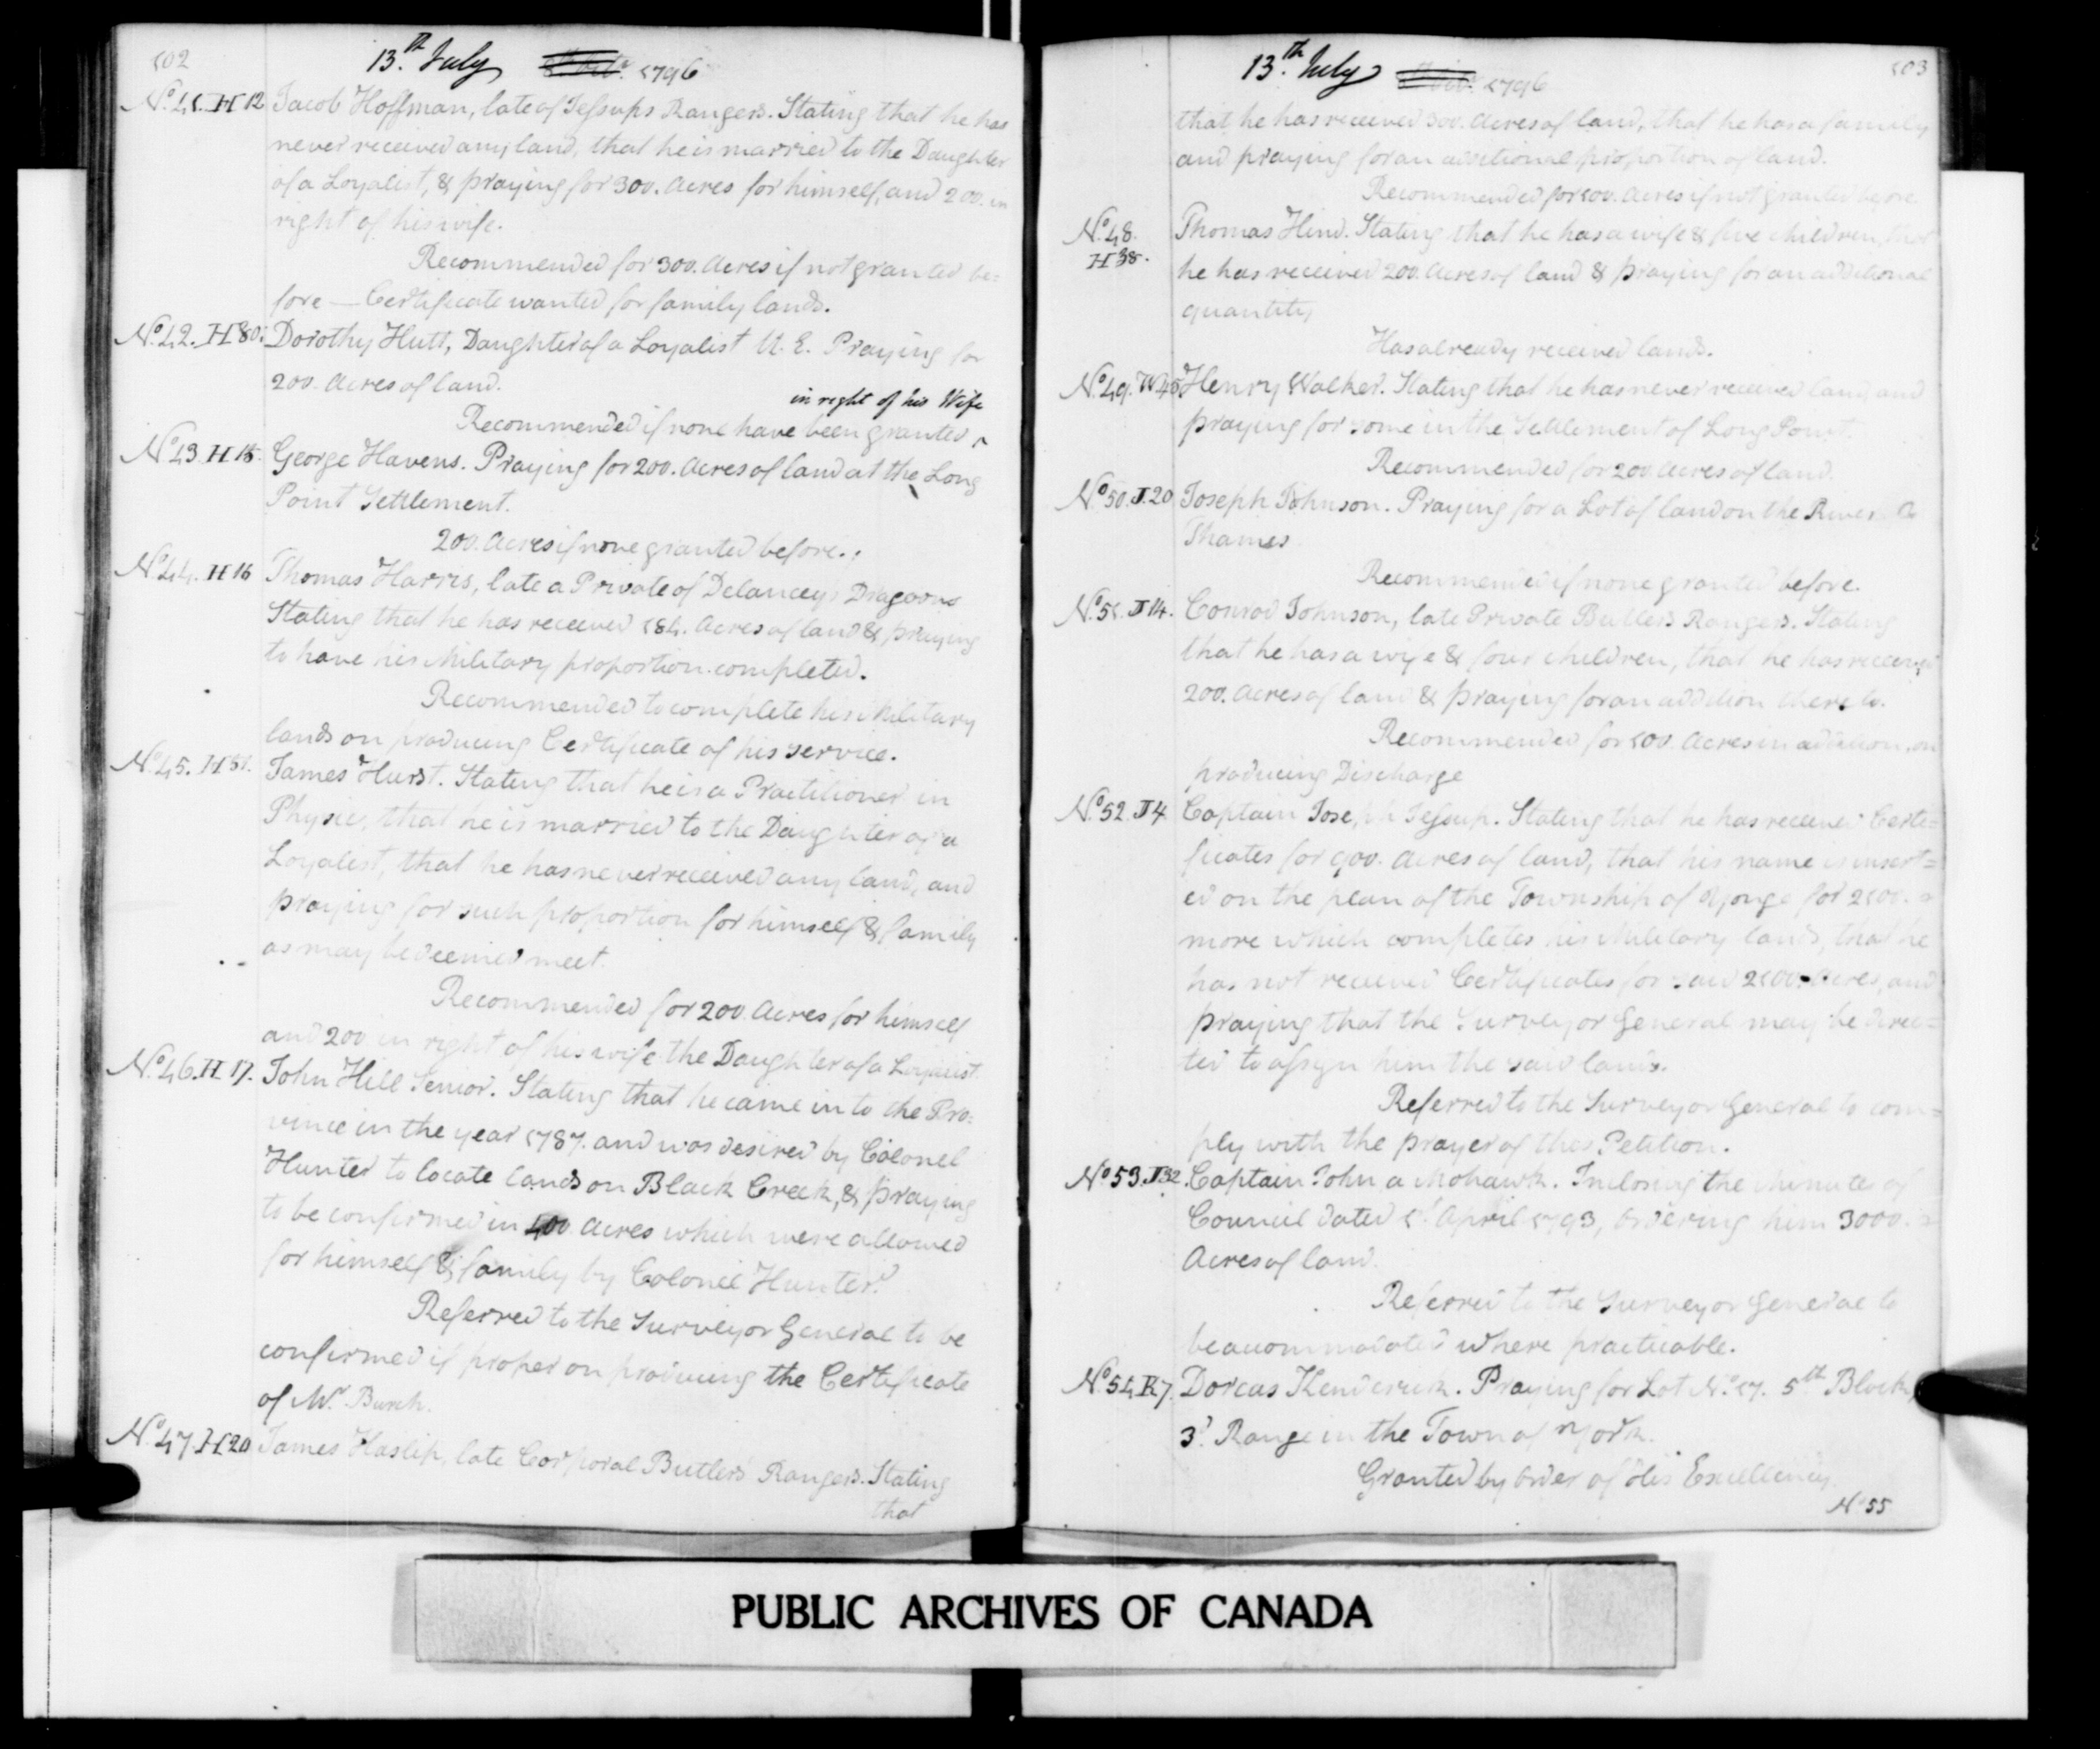 102
13.th July 1796
No. 41. H 12 Jacob Hoffman, late of Jessups Rangers. Stating that he has
never received any land, that he is married to the Daughter
of a Loyalist, & praying for 300. Acres for himself, and 200. in
right of his wife.
Recommended for 300. Acres if not granted be=
fore — Certificate wanted for family lands.
No. 42. H 80. Dorothy Hutt, Daughter of a Loyalist U. E. Praying for
200. Acres of land.
in right of his Wife
Recommended if none have been granted ^
No. 43 H 15. George Havens. Praying for 200. Acres of land at the Long
Point Settlement.
200. Acres if none granted before.
No. 44. H 16 Thomas Harris, late a Private of Delanceys Dragoons
Stating that he has received 184. Acres of land & praying
to have his Military proportion completed.
Recommended to complete his Military
lands on producing Certificate of his service.
No. 45. H 51. James Hurst. Stating that he is a Practitioner in
Physic, that he is married to the Daughter of a
Loyalist, that he has never received any land, and
praying for such proportion for himself & family
as may be deemed meet.
Recommended for 200. Acres for himself
and 200 in right of his wife the Daughter of a Loyalist.
No. 46. H 17. John Hill Senior. Stating that he came in to the Pro=
vince in the year 1787. and was desired by Colonel
Hunter to locate lands on Black Creek, & praying
to be confirmed in 400 Acres which were allowed
for himself & family by Colonel Hunter.
Referred to the Surveyor General to be
confirmed if proper on producing the Certificate
of Mr. Burch.
No. 47. H 20 James Haslip, late Corporal Butlers Rangers. Stating
that
13.th July 1796
103
that he has received 300. Acres of land, that he has a family
and praying for an additional proportion of land.
Recommended for 100. Acres if not granted before
No. 48. Thomas Hind. Stating that he has a wife & five children, that
H 38. he has received 200. Acres of land & praying for an additional
quantity
Has already received lands.
No. 49. W 45 Henry Walker. Stating that he has never received land, and
praying for some in the Settlement of Long Point.
Recommended for 200 Acres of land.
No. 50. J. 20 Joseph Johnson. Praying for a Lot of land on the River
Thames
Recommended if none granted before.
No. 51. J 14. Conrad Johnson, late Private Butlers Rangers. Stating
that he has a wife & four children, that he has received
200. Acres of land & praying for an addition thereto.
Recommended for 100. Acres in addition, on
producing Discharge
No. 52. J 4 Captain Joseph Jessup. Stating that he has received Certi=
ficates for 900. Acres of land, that his name is insert=
ed on the plan of the Township of Yonge for 2100.
more which completes his Military lands, that he
has not received Certificates for said 2100. Acres, and
praying that the Surveyor General may be direc=
ted to assign him the said lands.
Referred to the Surveyor General to com=
ply with the prayer of this Petition.
No. 53. J 32. Captain John a Mohawk. Inclosing the Minute of
Council dated 1st April 1793, ordering him 3000.
Acres of land.
Referred to the Surveyor General to
be accommodated where practicable.
No. 54. K 7. Dorcas Kenderick. Praying for Lot No. 17. 5th Block,
3d Range in the Town of York.
Granted by order of His Excellency
No 55
PUBLIC ARCHIVES OF CANADA